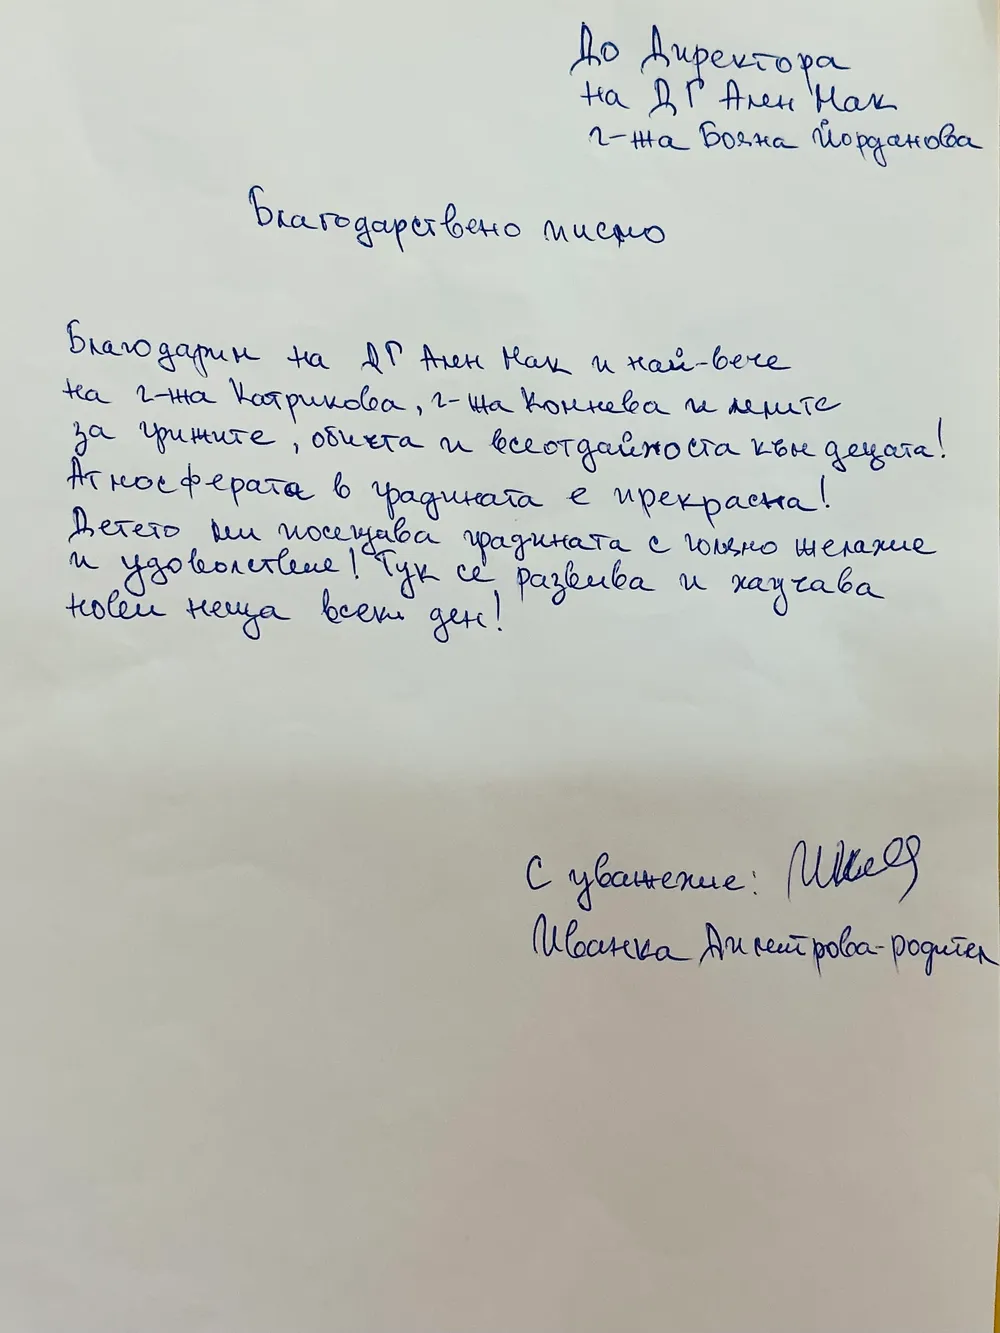 До Директора
на ДГ Ален Мак
г-жа Бояна Йорданова
Благодарствено писмо
Благодарим на ДГ Ален Мак и най-вече
на г-жа Катрикова, г-жа Коннева и лелите
за грижите, обичта и всеотдайността към децата!
Атмосферата в градината е прекрасна!
Детето ми посещава градината с голямо желание
и удоволствие! Тук се развива и научава
нови неща всеки ден!
С уважение:
Иванка Димитрова-родител